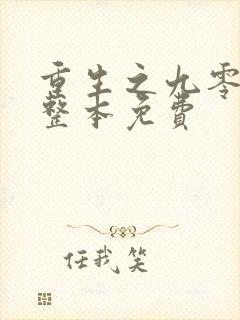 重生之九零
整本免费
任我笑